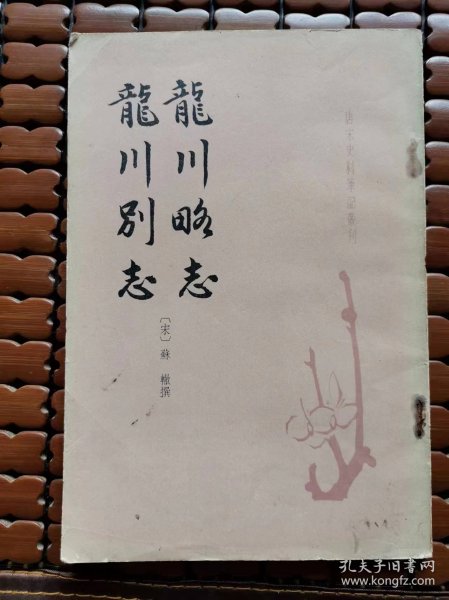 唐宋史料筆記叢刊
龍川略志
龍川別志
〔宋〕蘇轍撰
孔夫子旧书网
www.kongfz.com